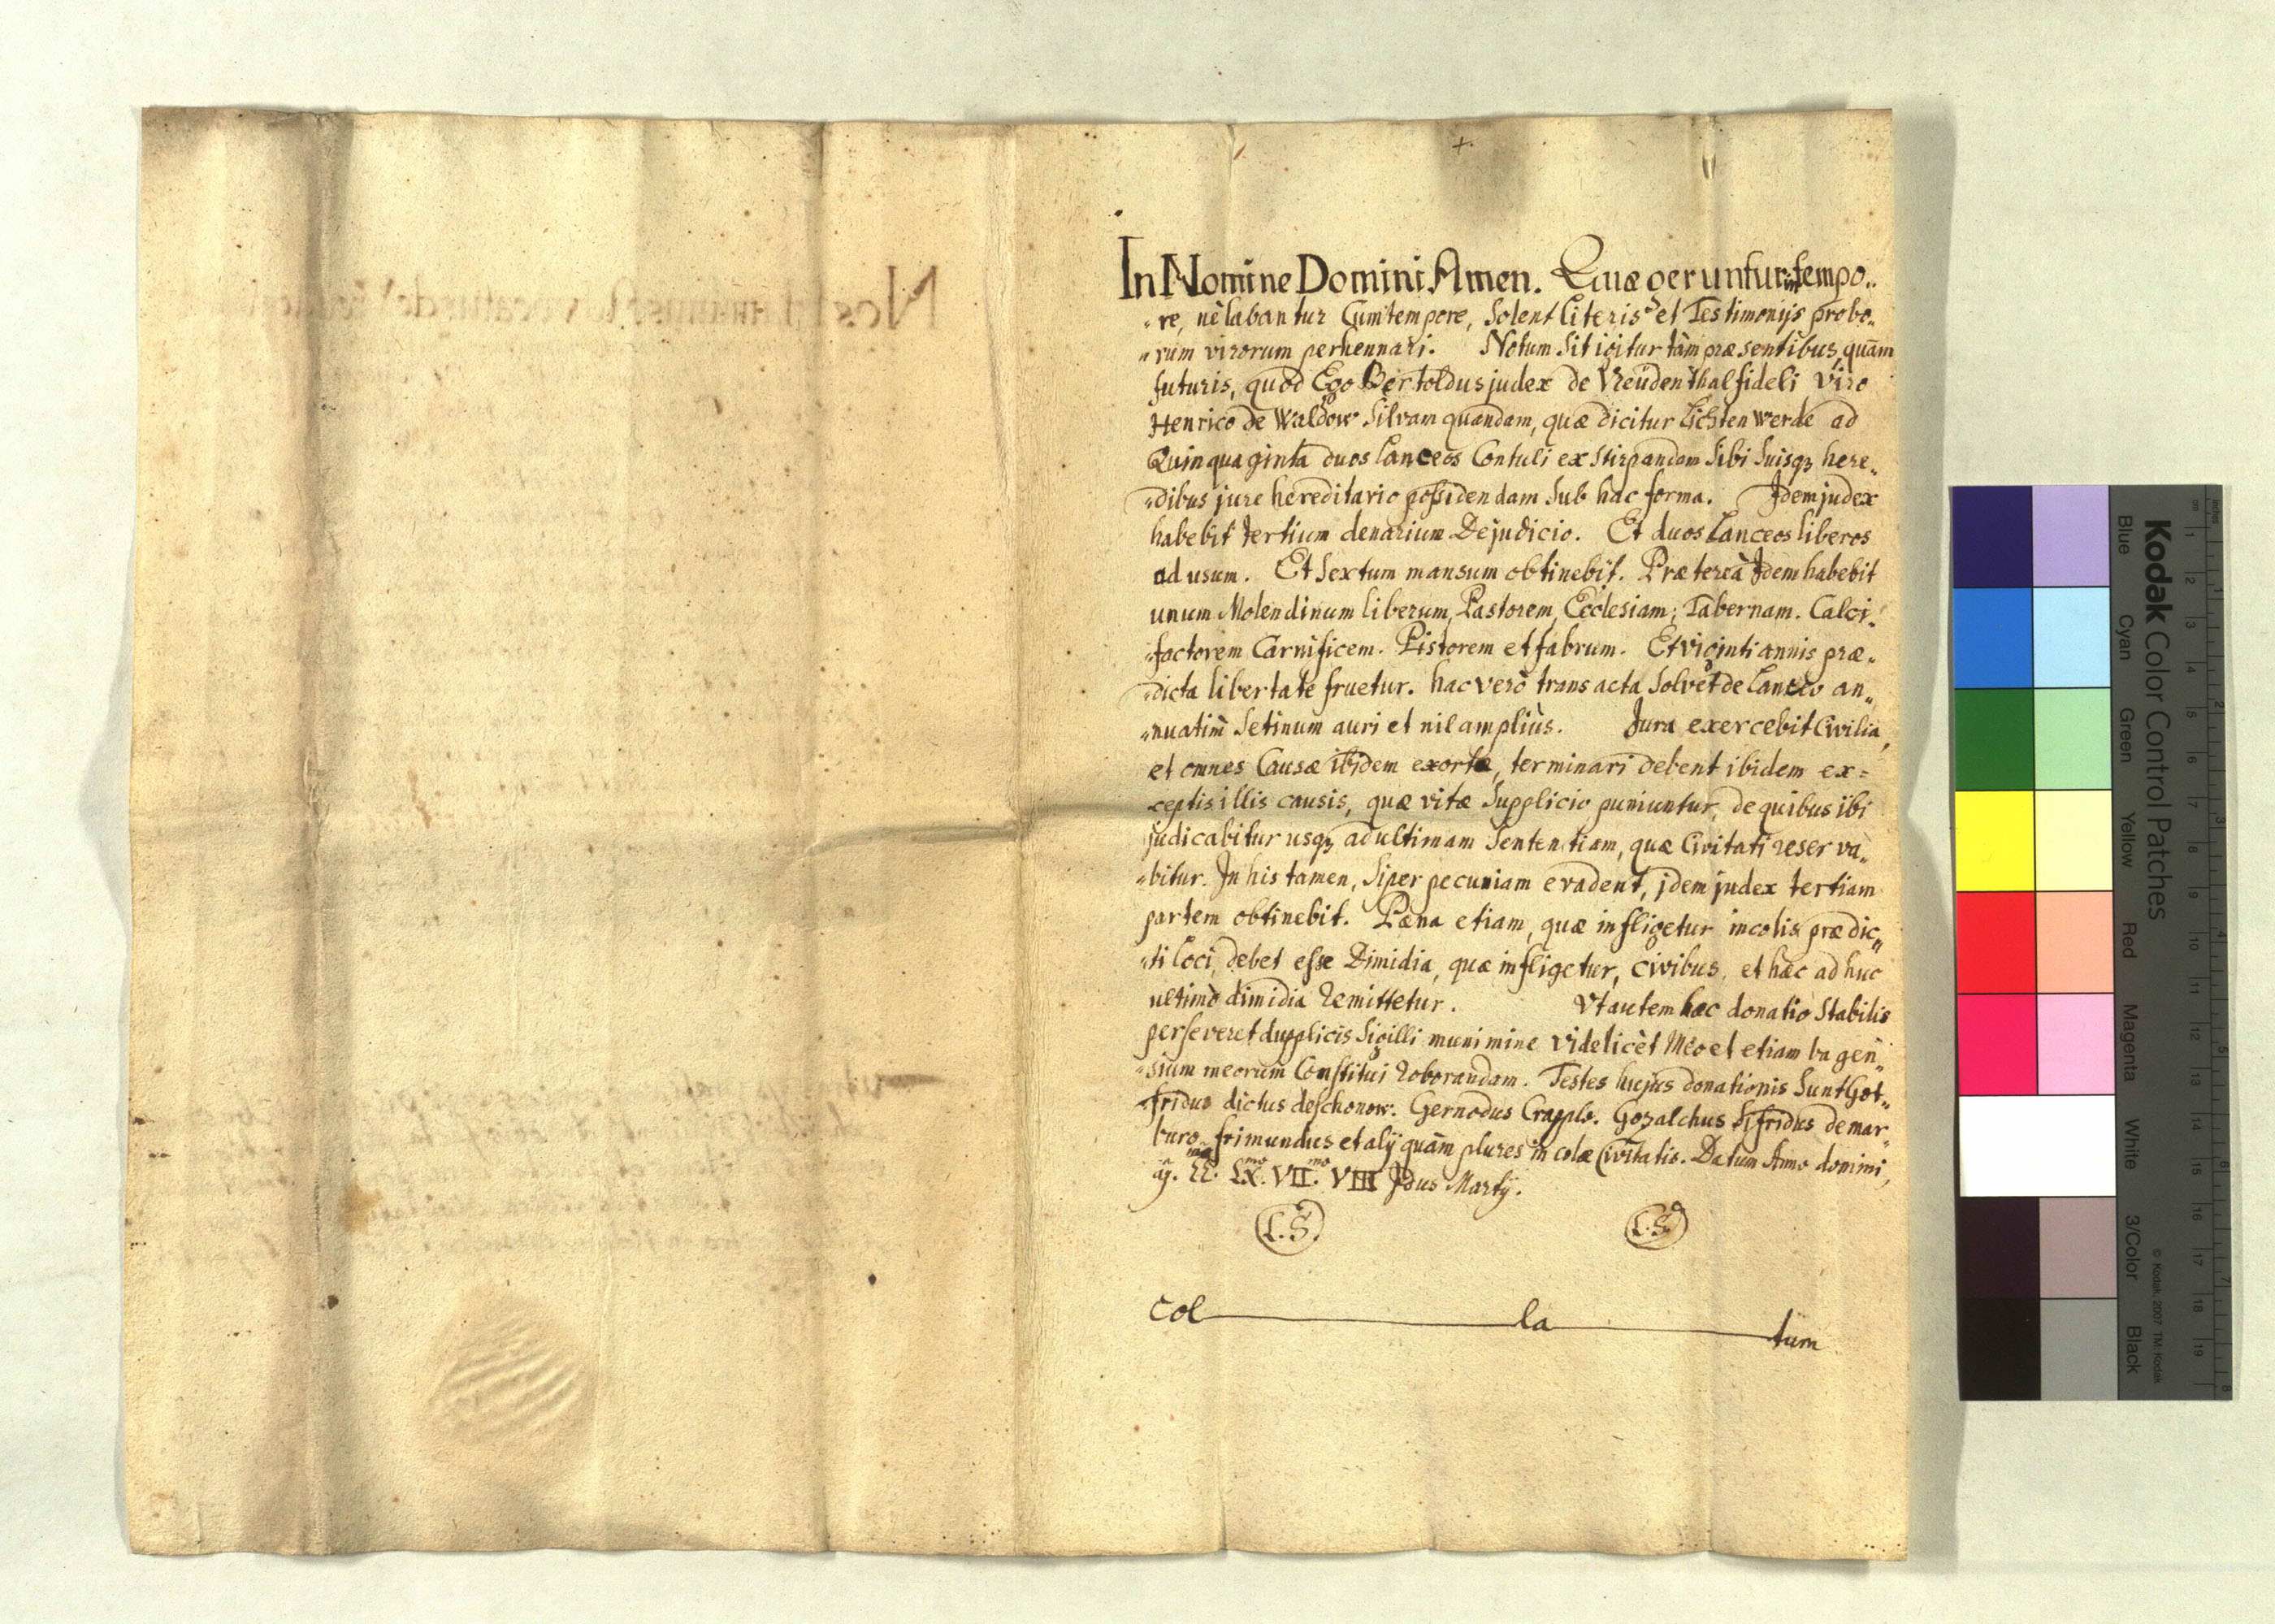 In Nomine Domini Amen. Quæ geruntur in tempo„
„re, nè labantur Cum tempore, Solent literis et Testimonijs probo„
„rum virorum perhennari. Notum sit igitur tàm præsentibus, quàm
futuris, quòd Ego Bertoldus judex de Vreüdenthal fideli viro
Henrico de Waldow Silvam quandam, quæ dicitur Lichtenwerde ad
Quinquaginta duos Lanceos Contuli exstirpandam Sibi Suisq3 here„
„dibus jure hereditario possidendam Sub hac forma. Idem judex
habebit tertium denarium De judicio. Et duos Lanceos liberos
ad usum. Et Sextum mansum obtinebit. Prætereà Idem habebit
unum Molendinum liberum, Pastorem, Ecclesiam; Tabernam. Calci„
„factorem Carnificem. Pistorem et fabrum. Et viginti annis præ„
„dicta libertate fruetur. hac verò transacta Solvet de Lanceo an„
„nuatim Setinum auri et nil ampliùs. Jura exercebit Civilia,
et omnes Causæ ibidem exortæ, terminari debent ibidem ex=
ceptis illis causis, quæ vitæ Supplicio puniuntur, de quibus ibi
judicabitur usq3 ad ultimam Sententiam, quæ Civitati reserva„
„bitur. In his tamen, Si per pecuniam evadent, jdem judex tertiam
partem obtinebit. Pæna etiam, quæ infligetur incolis prædic„
„ti Loci, debet esse Dimidia, quæ infligetur, Civibus, et hæc adhuc
ultimò dimidia Remittetur. Vt autem hæc donatio Stabilis
perseveret dupplicis Sigilli munimine videlicèt Meo et etiam bu gen„
„sium meorum Constitui Roborandam. Testes hujus donationis Sunt Got„
„fridus dictus deschonow. Gernodus Crapplo. Gozalchus Sifridus de mar„
burg frimundus et alÿ quàm plures incolæ Civitatis. Datum Anno domini,
LX. VII.mo VIII Idus Martÿ.
L.S. L.S.
Col la tum
Nos
Kodak Color Control Patches
Blue Cyan Green Yellow Red Magenta White 3/Color Black
© Kodak, 2007 TM: Kodak